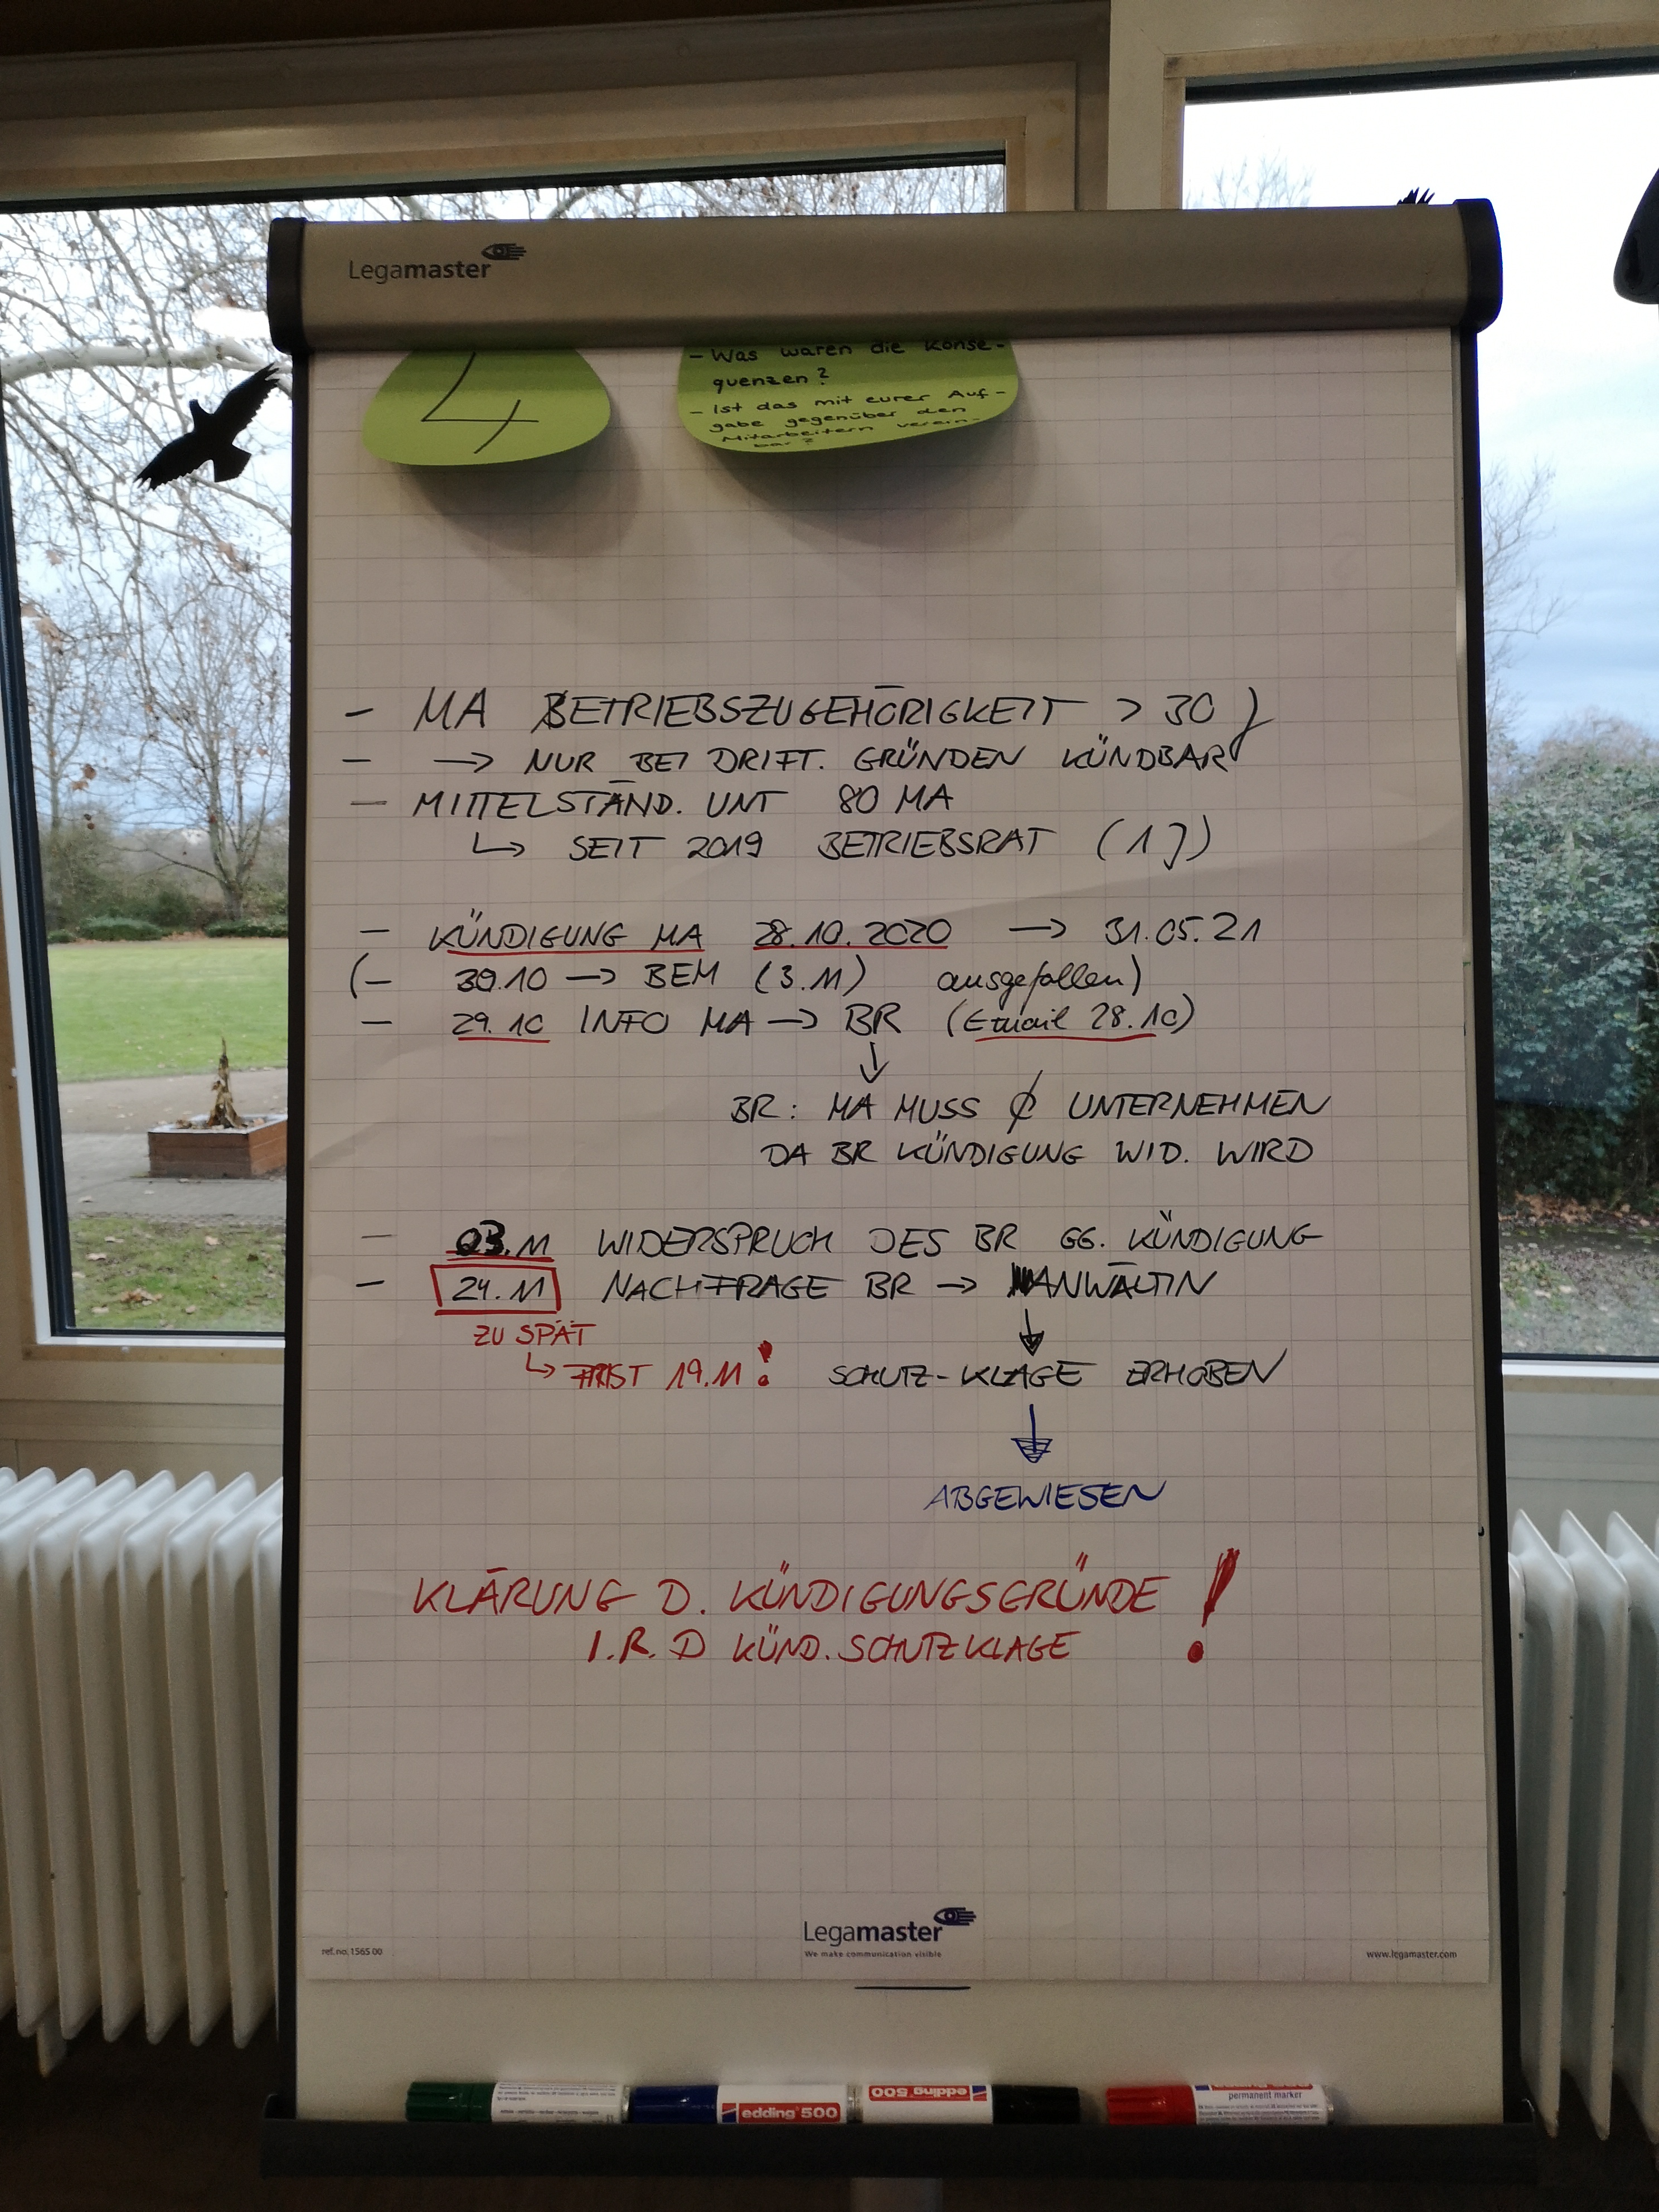 Legamaster
4
- Was waren die Konse-
quenzen?
- Ist das mit eurer Auf-
gabe gegenüber den
Mitarbeitern verein-
bar?
- MA BETRIEBSZUGEHÖRIGKEIT > 30 J
- → NUR BEI DRIFT. GRÜNDEN KÜNDBAR
- MITTELSTÄND. UNT 80 MA
↳ SEIT 2019 BETRIEBSRAT (1 J)
- KÜNDIGUNG MA 28.10.2020 → 31.05.21
(- 30.10 → BEM (3.11) ausgefallen)
- 29.10 INFO MA → BR (Email 28.10)
↓
BR: MA MUSS ¢ UNTERNEHMEN
DA BR KÜNDIGUNG WID. WIRD
- 03.11 WIDERSPRUCH DES BR GG. KÜNDIGUNG
- 24.11 NACHFRAGE BR → ANWÄLTIN
ZU SPÄT
↳ FRIST 19.11! SCHUTZ-KLAGE ERHOBEN
↓
ABGEWIESEN
KLÄRUNG D. KÜNDIGUNGSGRÜNDE !
I.R.D KÜND.SCHUTZKLAGE
Legamaster
We make communication visible
ref.no. 1565 00
www.legamaster.com
edding 500
edding 500
permanent marker